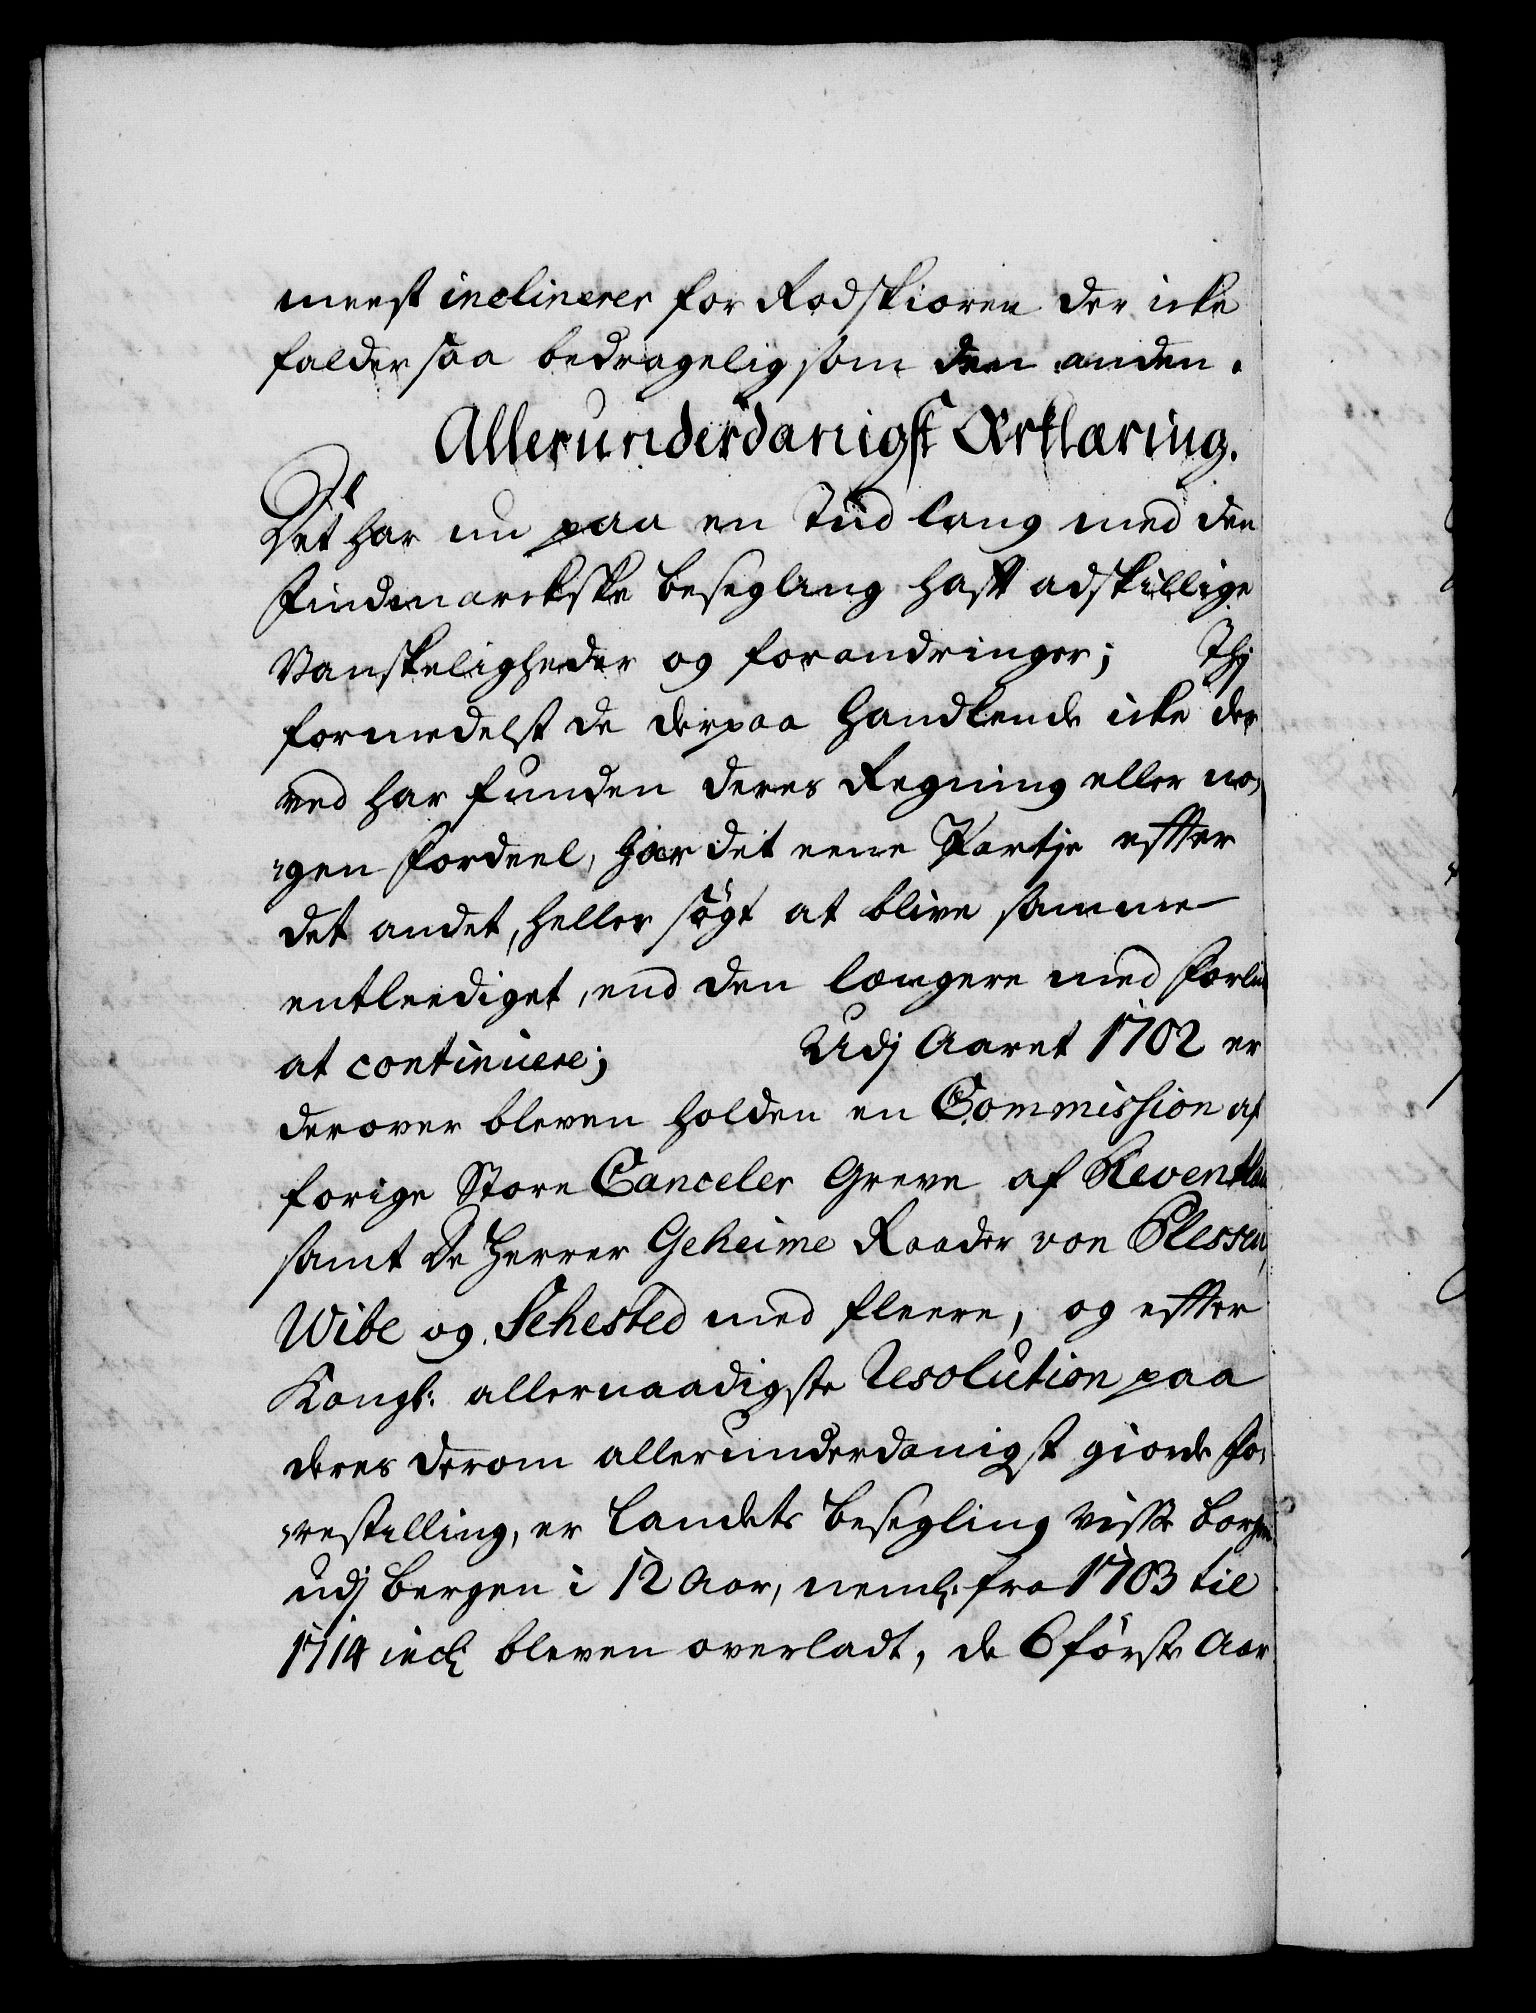 meest inclinerer for Rodskioren der icke
falder saa bedragelig som den anden.
Allerunderdanigst Erklæring.
Det har nu paa en Tiid lang med den
Findmarckske Besegling hafft adskillige
Vanskeligheder og forandringer; Thj
formedelst de derpaa Handlende icke der
ved har funden deres Regning eller no,
,gen Fordeel, har det eene Partje effter
det andet, heller søgt at blive samme
entleediget, end den længere med Forliis
at continuere; Udj Aaret 1702 er
derover bleven holden en Commission af
forige Store Canceler Greve af Reventlau
samt De Herrer Geheime Raader von Plessen,
Wibe og Sehested med fleere, og effter
Kongl: allernaadigste Resolution paa
deres derom allerunderdanigst giorde Fo,
,restilling, er Landets Besegling visse Borgere
udj Bergen i 12 Aar, neml: fra 1703 til
1714 incl: bleven overladt, de 6 første Aar